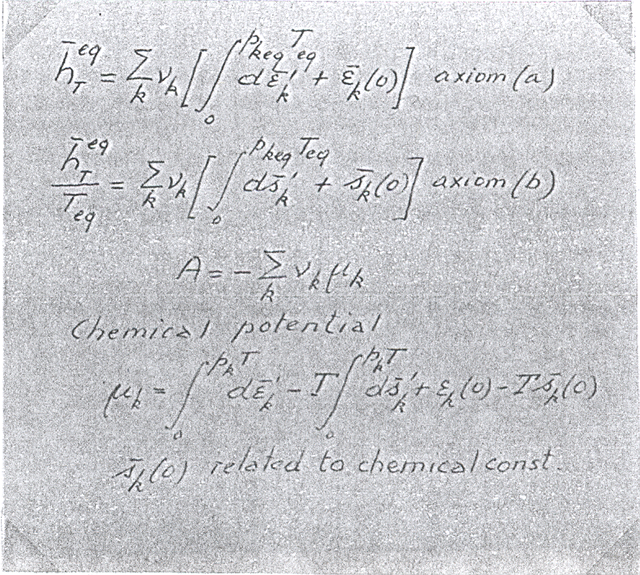 h̄_T^eq = Σ_k ν_k [ ∫_0^{p_keq T_eq} dε̄_k' + ε̄_k(0) ] axiom (a)
h̄_T^eq / T_eq = Σ_k ν_k [ ∫_0^{p_keq T_eq} ds̄_k' + s̄_k(0) ] axiom (b)
A = - Σ_k ν_k μ_k
Chemical potential
μ_k = ∫_0^{p_k T} dε̄_k' - T ∫_0^{p_k T} ds̄_k' + ε_k(0) - T s̄_k(0)
s̄_k(0) related to chemical const.